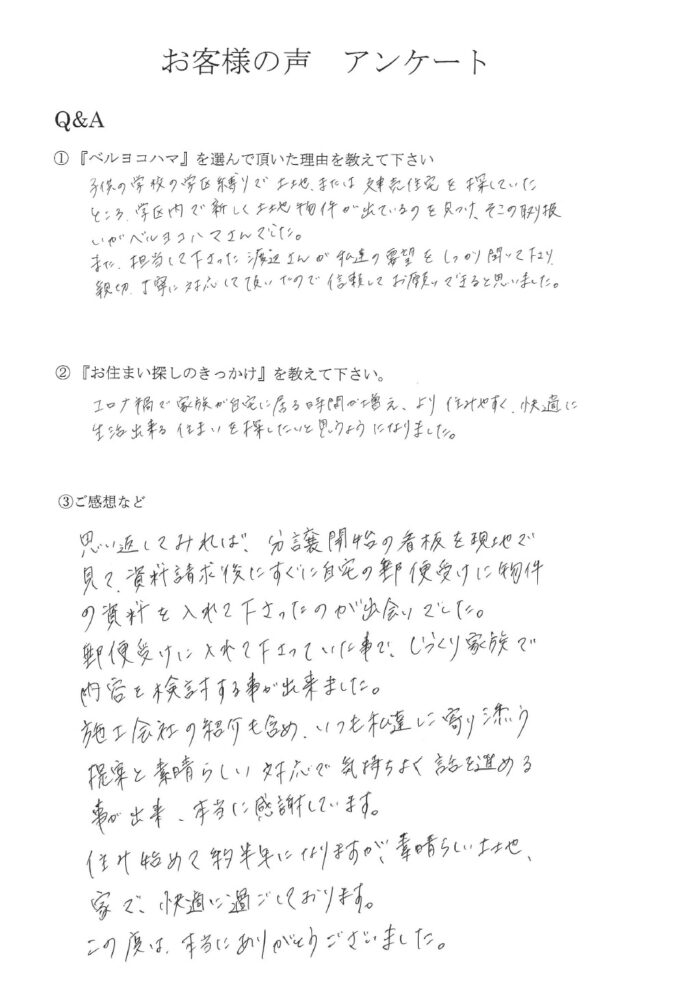 お客様の声 アンケート
Q&A
① 『ベルヨコハマ』を選んで頂いた理由を教えて下さい
子供の学校の学区縛りで土地、または建売住宅を探していた
ところ、学区内で新しく土地物件が出ているのを見つけ、そこの取り扱
いがベルヨコハマさんでした。
また、担当して下さった渡辺さんが私達の要望をしっかり聞いて下さり、
親切、丁寧に対応して頂いたので信頼してお願いできると思いました。
② 『お住まい探しのきっかけ』を教えて下さい。
コロナ禍で家族が自宅に居る時間が増え、より住みやすく、快適に
生活出来る住まいを探したいと思うようになりました。
③ご感想など
思い返してみれば、分譲開始の看板を現地で
見て、資料請求後にすぐに自宅の郵便受けに物件
の資料を入れて下さったのが出会いでした。
郵便受けに入れて下さっていた事で、じっくり家族で
内容を検討する事が出来ました。
施工会社の紹介も含め、いつも私達に寄り添う
提案と素晴らしい対応で気持ちよく話を進める
事が出来、本当に感謝しています。
住み始めて約半年になりますが、素晴らしい土地、
家で、快適に過ごしております。
この度は、本当にありがとうございました。